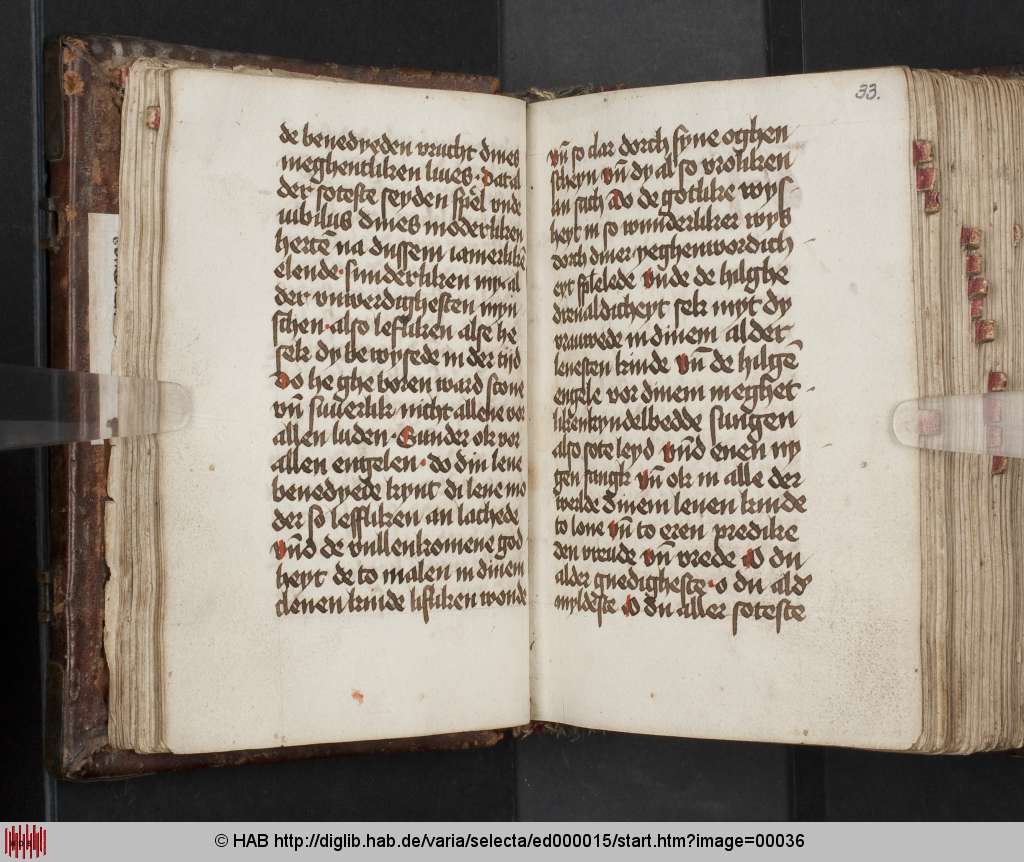 de benedyeden vrucht dines
meghentliken liues · Dat al
der soteste seyden spel vnde
iubilus dines moderliken
herte na dussem iamerlike
elende · sunderliken my · al
der vnwerdighesten myn
schen · also lefliken alse he
sek dy be wysede in der tijd
Do he ghe boren ward scone
vn suuerlik nicht allene vor
allen luden · Sunder ok vor
allen engelen · do din leue
benedyede kynt di leue mo
der so leffliken an lachede
vnd de vullenkomene god
heyt de to malen in dinem
clenen kinde lifliken wonde
33.
vn so clar dorch syne oghen
scheyn vn dy al so vroliken
an sach Do de gotlike wys
heyt in so wunderliker wys
dorch diner yeghenwordich
eyt spelede vnde de hilghe
dreualdicheyt sek myt dy
vrauwede in dinem alder
leuesten kinde vn de hilge
engele vor dinem meghet
liken kyndelbedde sungen
also sote leyd vnd enen ny
gen sangk vn ok in alle der
werlde dinem leuen kinde
to loue vn to eren predike
den vreude vn vrede O du
alder gnedigheste · o du ald
myldeste O du aller soteste
© HAB http://diglib.hab.de/varia/selecta/ed000015/start.htm?image=00036